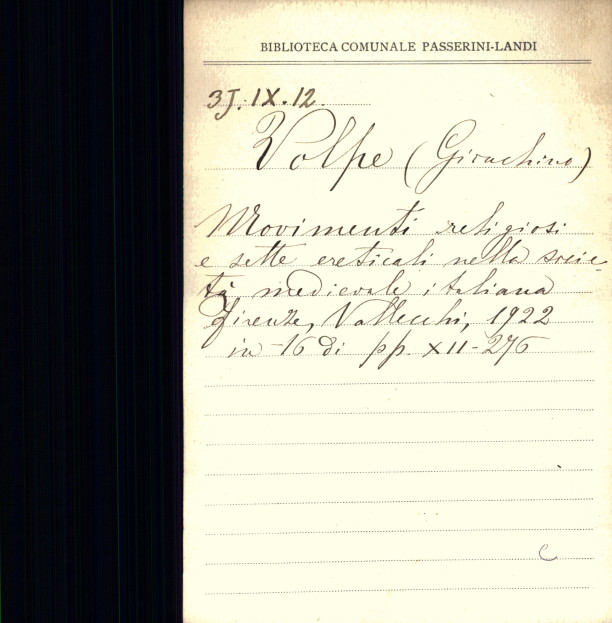 BIBLIOTECA COMUNALE PASSERINI-LANDI
3J. IX. 12.
Volpe (Gioachino)
Movimenti religiosi
e sette ereticali nella socie-
tà medievale italiana
Firenze, Vallecchi, 1922
in-16 di pp. XII-276
C